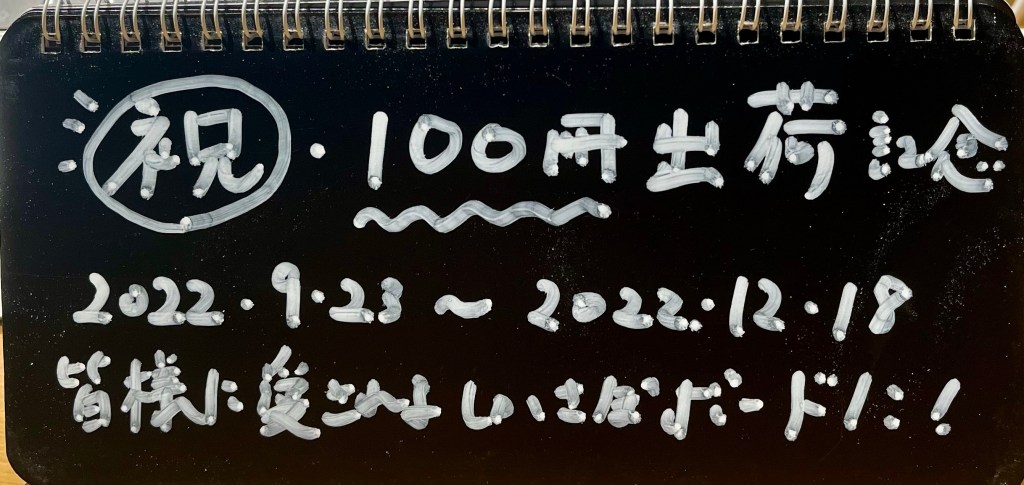 祝・100冊出荷記念
2022・9・23～2022・12・18
皆様に愛されし小さなボードだ！